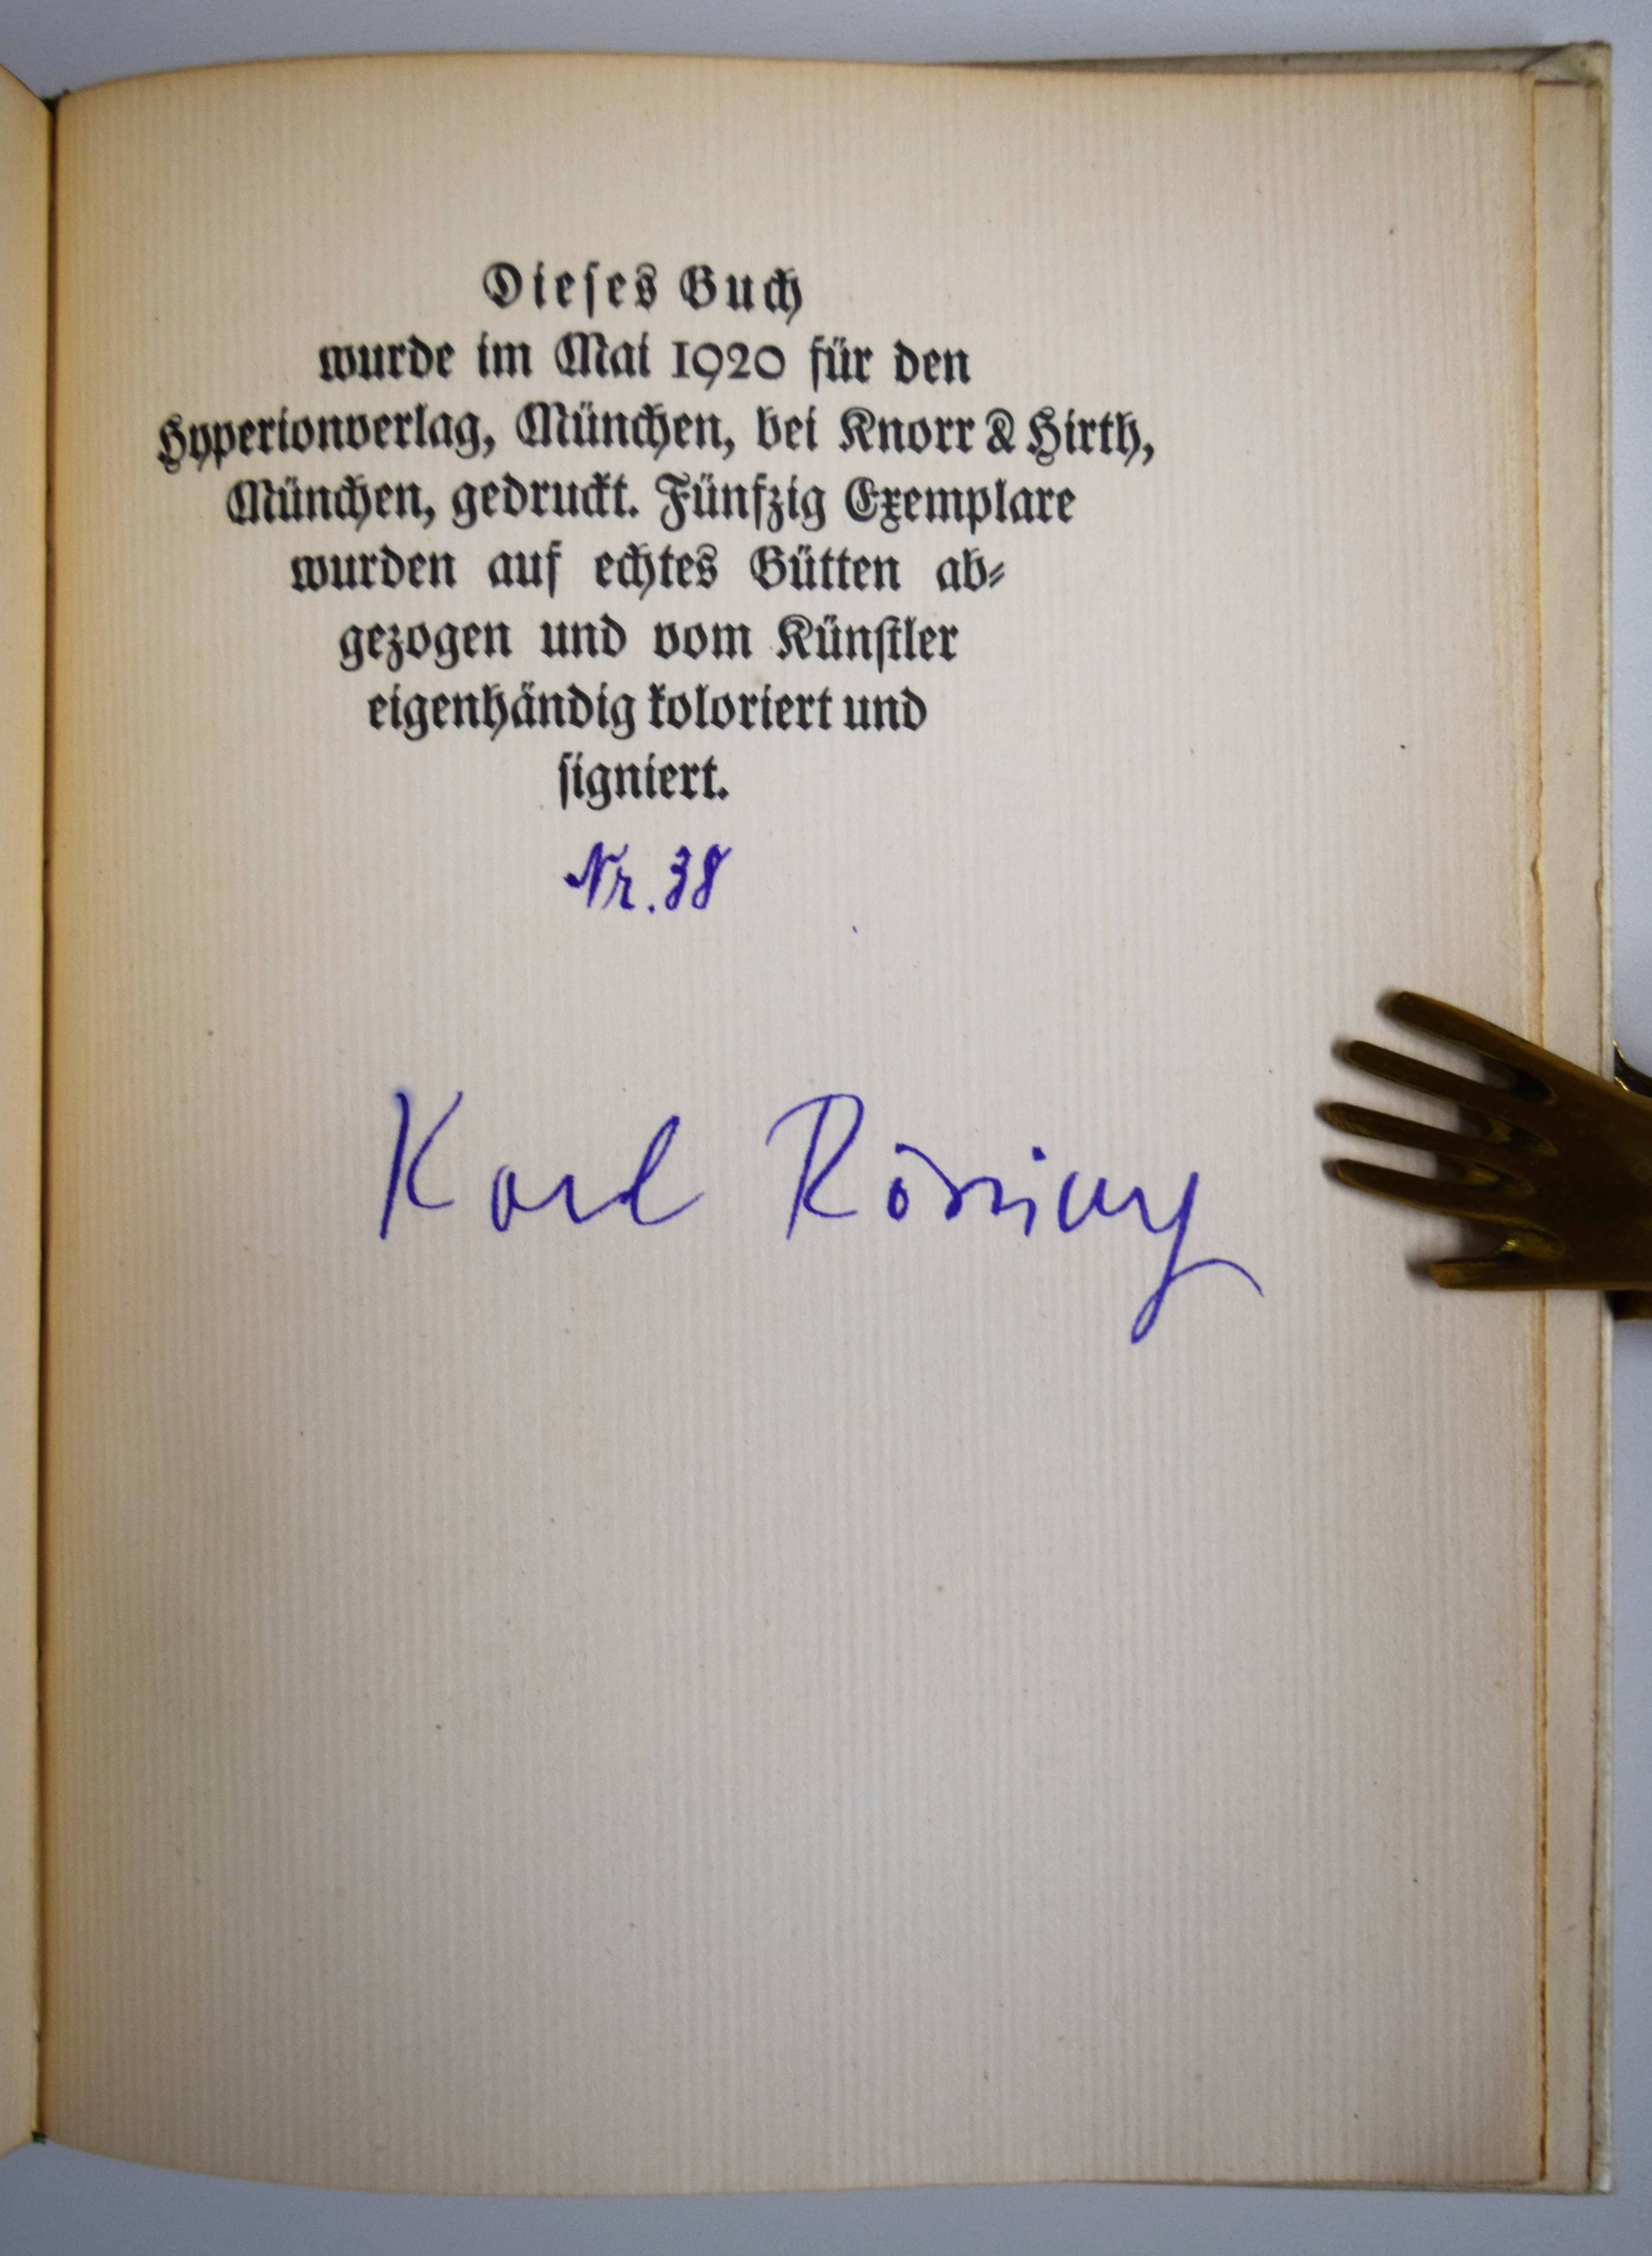 Dieses Buch
wurde im Mai 1920 für den
Hyperionverlag, München, bei Knorr & Hirth,
München, gedruckt. Fünfzig Exemplare
wurden auf echtes Bütten ab-
gezogen und vom Künstler
eigenhändig koloriert und
signiert.
Nr. 38
Karl Rössing